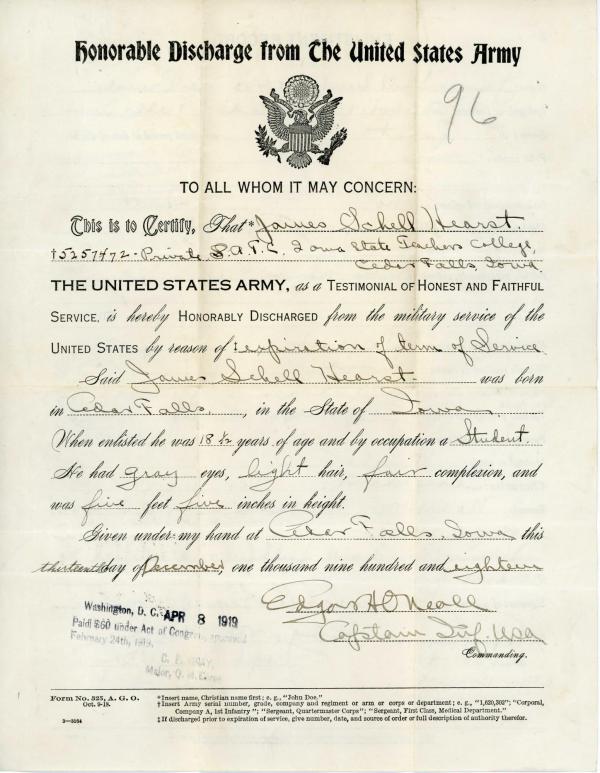 Honorable Discharge from The United States Army
96
TO ALL WHOM IT MAY CONCERN:
This is to Certify, That * James Schell Hearst.
†5257472 - Private S.A.T.C. Iowa State Teachers College,
Cedar Falls, Iowa.
THE UNITED STATES ARMY, as a TESTIMONIAL OF HONEST AND FAITHFUL
SERVICE, is hereby HONORABLY DISCHARGED from the military service of the
UNITED STATES by reason of ‡ expiration of term of Service
Said James Schell Hearst. was born
in Cedar Falls, in the State of Iowa.
When enlisted he was 18 1/2 years of age and by occupation a Student.
He had gray eyes, light hair, fair complexion, and
was five feet five inches in height.
Given under my hand at Cedar Falls, Iowa this
thirteenth day of December, one thousand nine hundred and eighteen
Edgar H O'Neall
Captain Inf. USA
Commanding.
Washington, D. C. APR 8 1919
Paid $60 under Act of Congress, approved
February 24th, 1919.
Major, Q. M. Corps
Form No. 525, A. G. O.
Oct. 9-18.
3—3164
*Insert name, Christian name first; e. g., "John Doe."
†Insert Army serial number, grade, company and regiment or arm or corps or department; e. g., "1,620,302"; "Corporal,
Company A, 1st Infantry"; "Sergeant, Quartermaster Corps"; "Sergeant, First Class, Medical Department."
‡If discharged prior to expiration of service, give number, date, and source of order or full description of authority therefor.